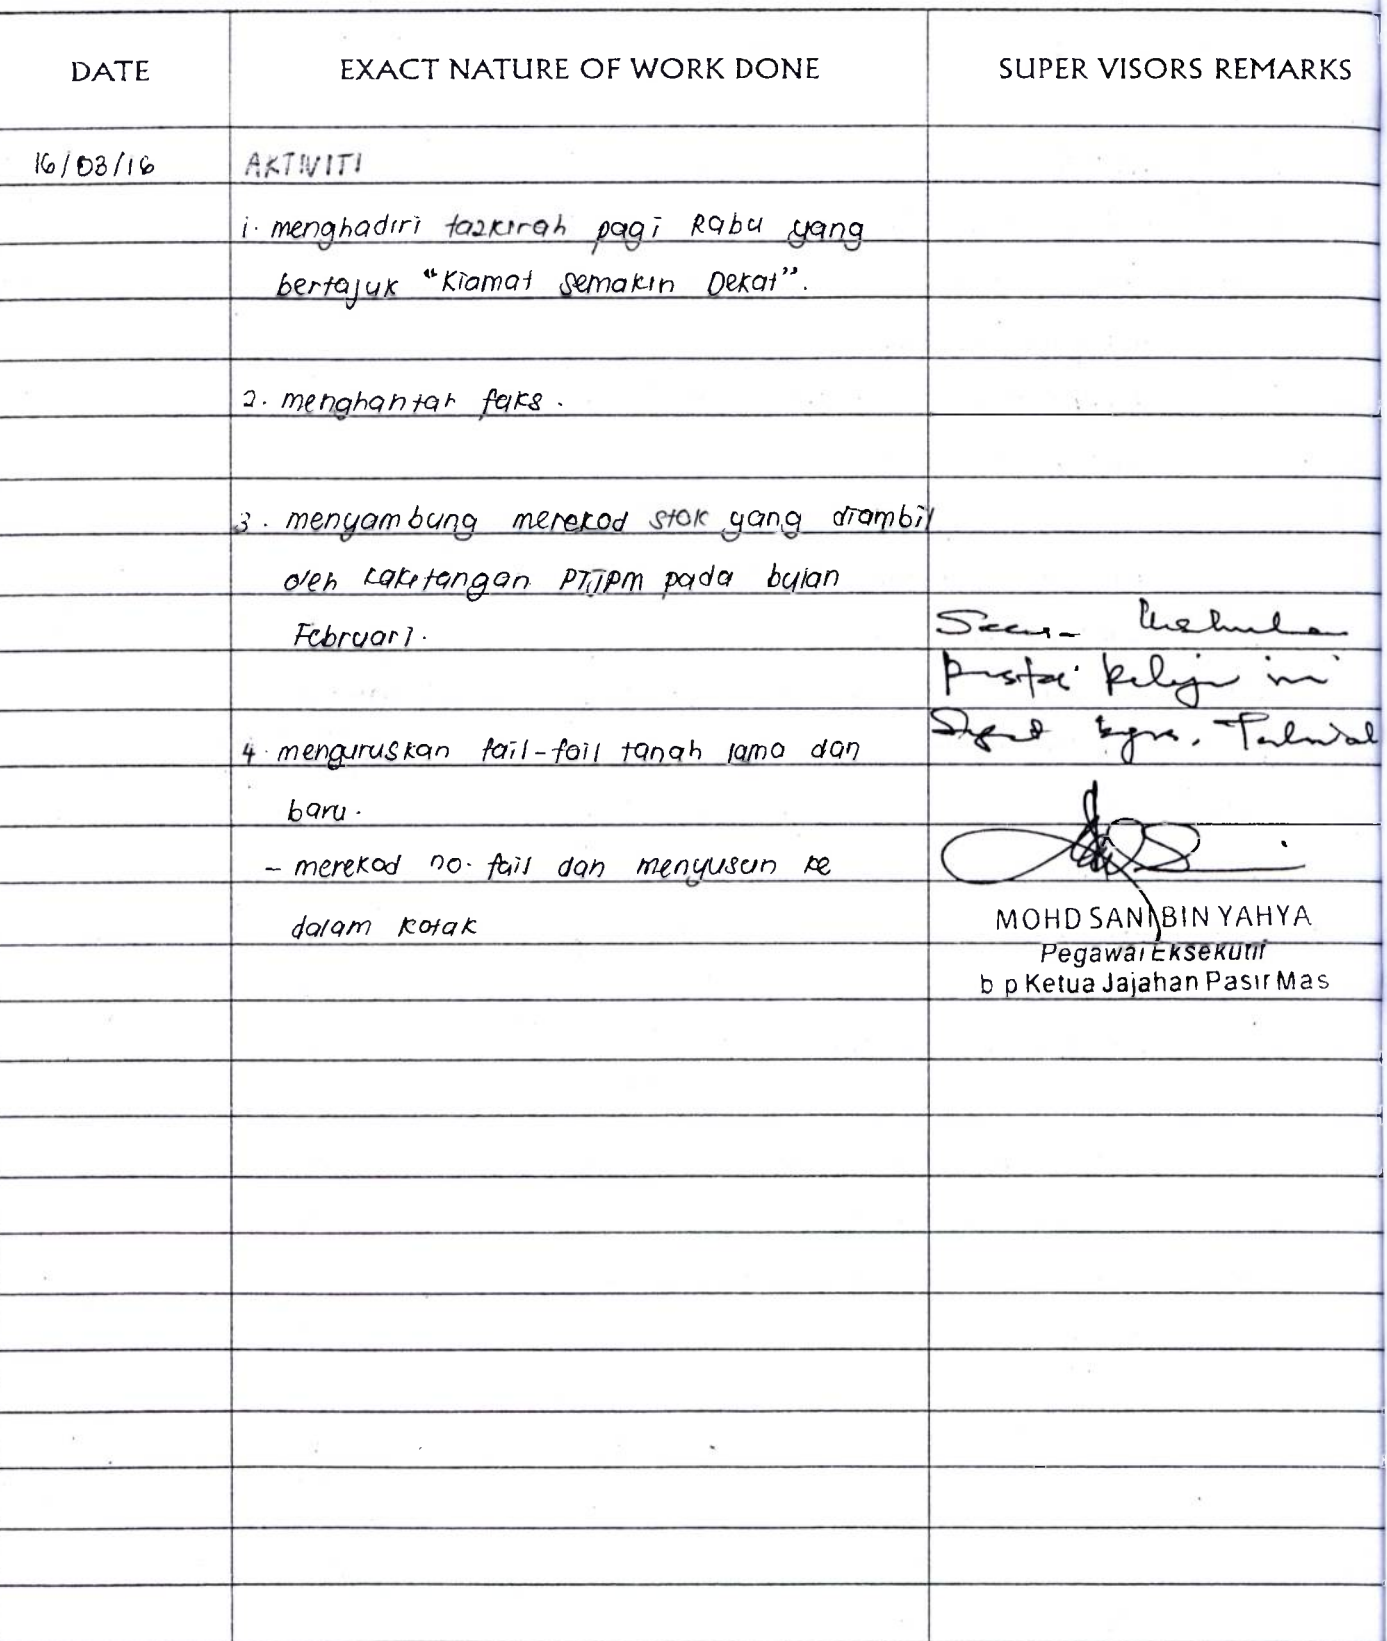 DATE
EXACT NATURE OF WORK DONE
SUPER VISORS REMARKS
16/03/16
AKTIVITI
1. menghadiri tazkirah pagi Rabu yang
bertajuk “Kiamat Semakin Dekat”.
2. menghantar faks.
3. menyambung merekod stok yang diambil
oleh kakitangan PTJPM pada bulan
Februari.
4. menguruskan fail-fail tanah lama dan
baru.
- merekod no. fail dan menyusun ke
dalam kotak
ini
MOHD SANI BIN YAHYA
Pegawai Eksekutif
b p Ketua Jajahan Pasir Mas